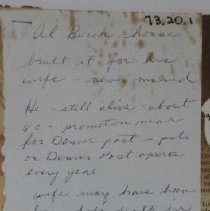 73.20.1
Al Birch house
built it for his
wife - never married
He - still alive - about
80 - promotion man
for Denver Post - puts
on Denver Post opera
every year
wife may have been